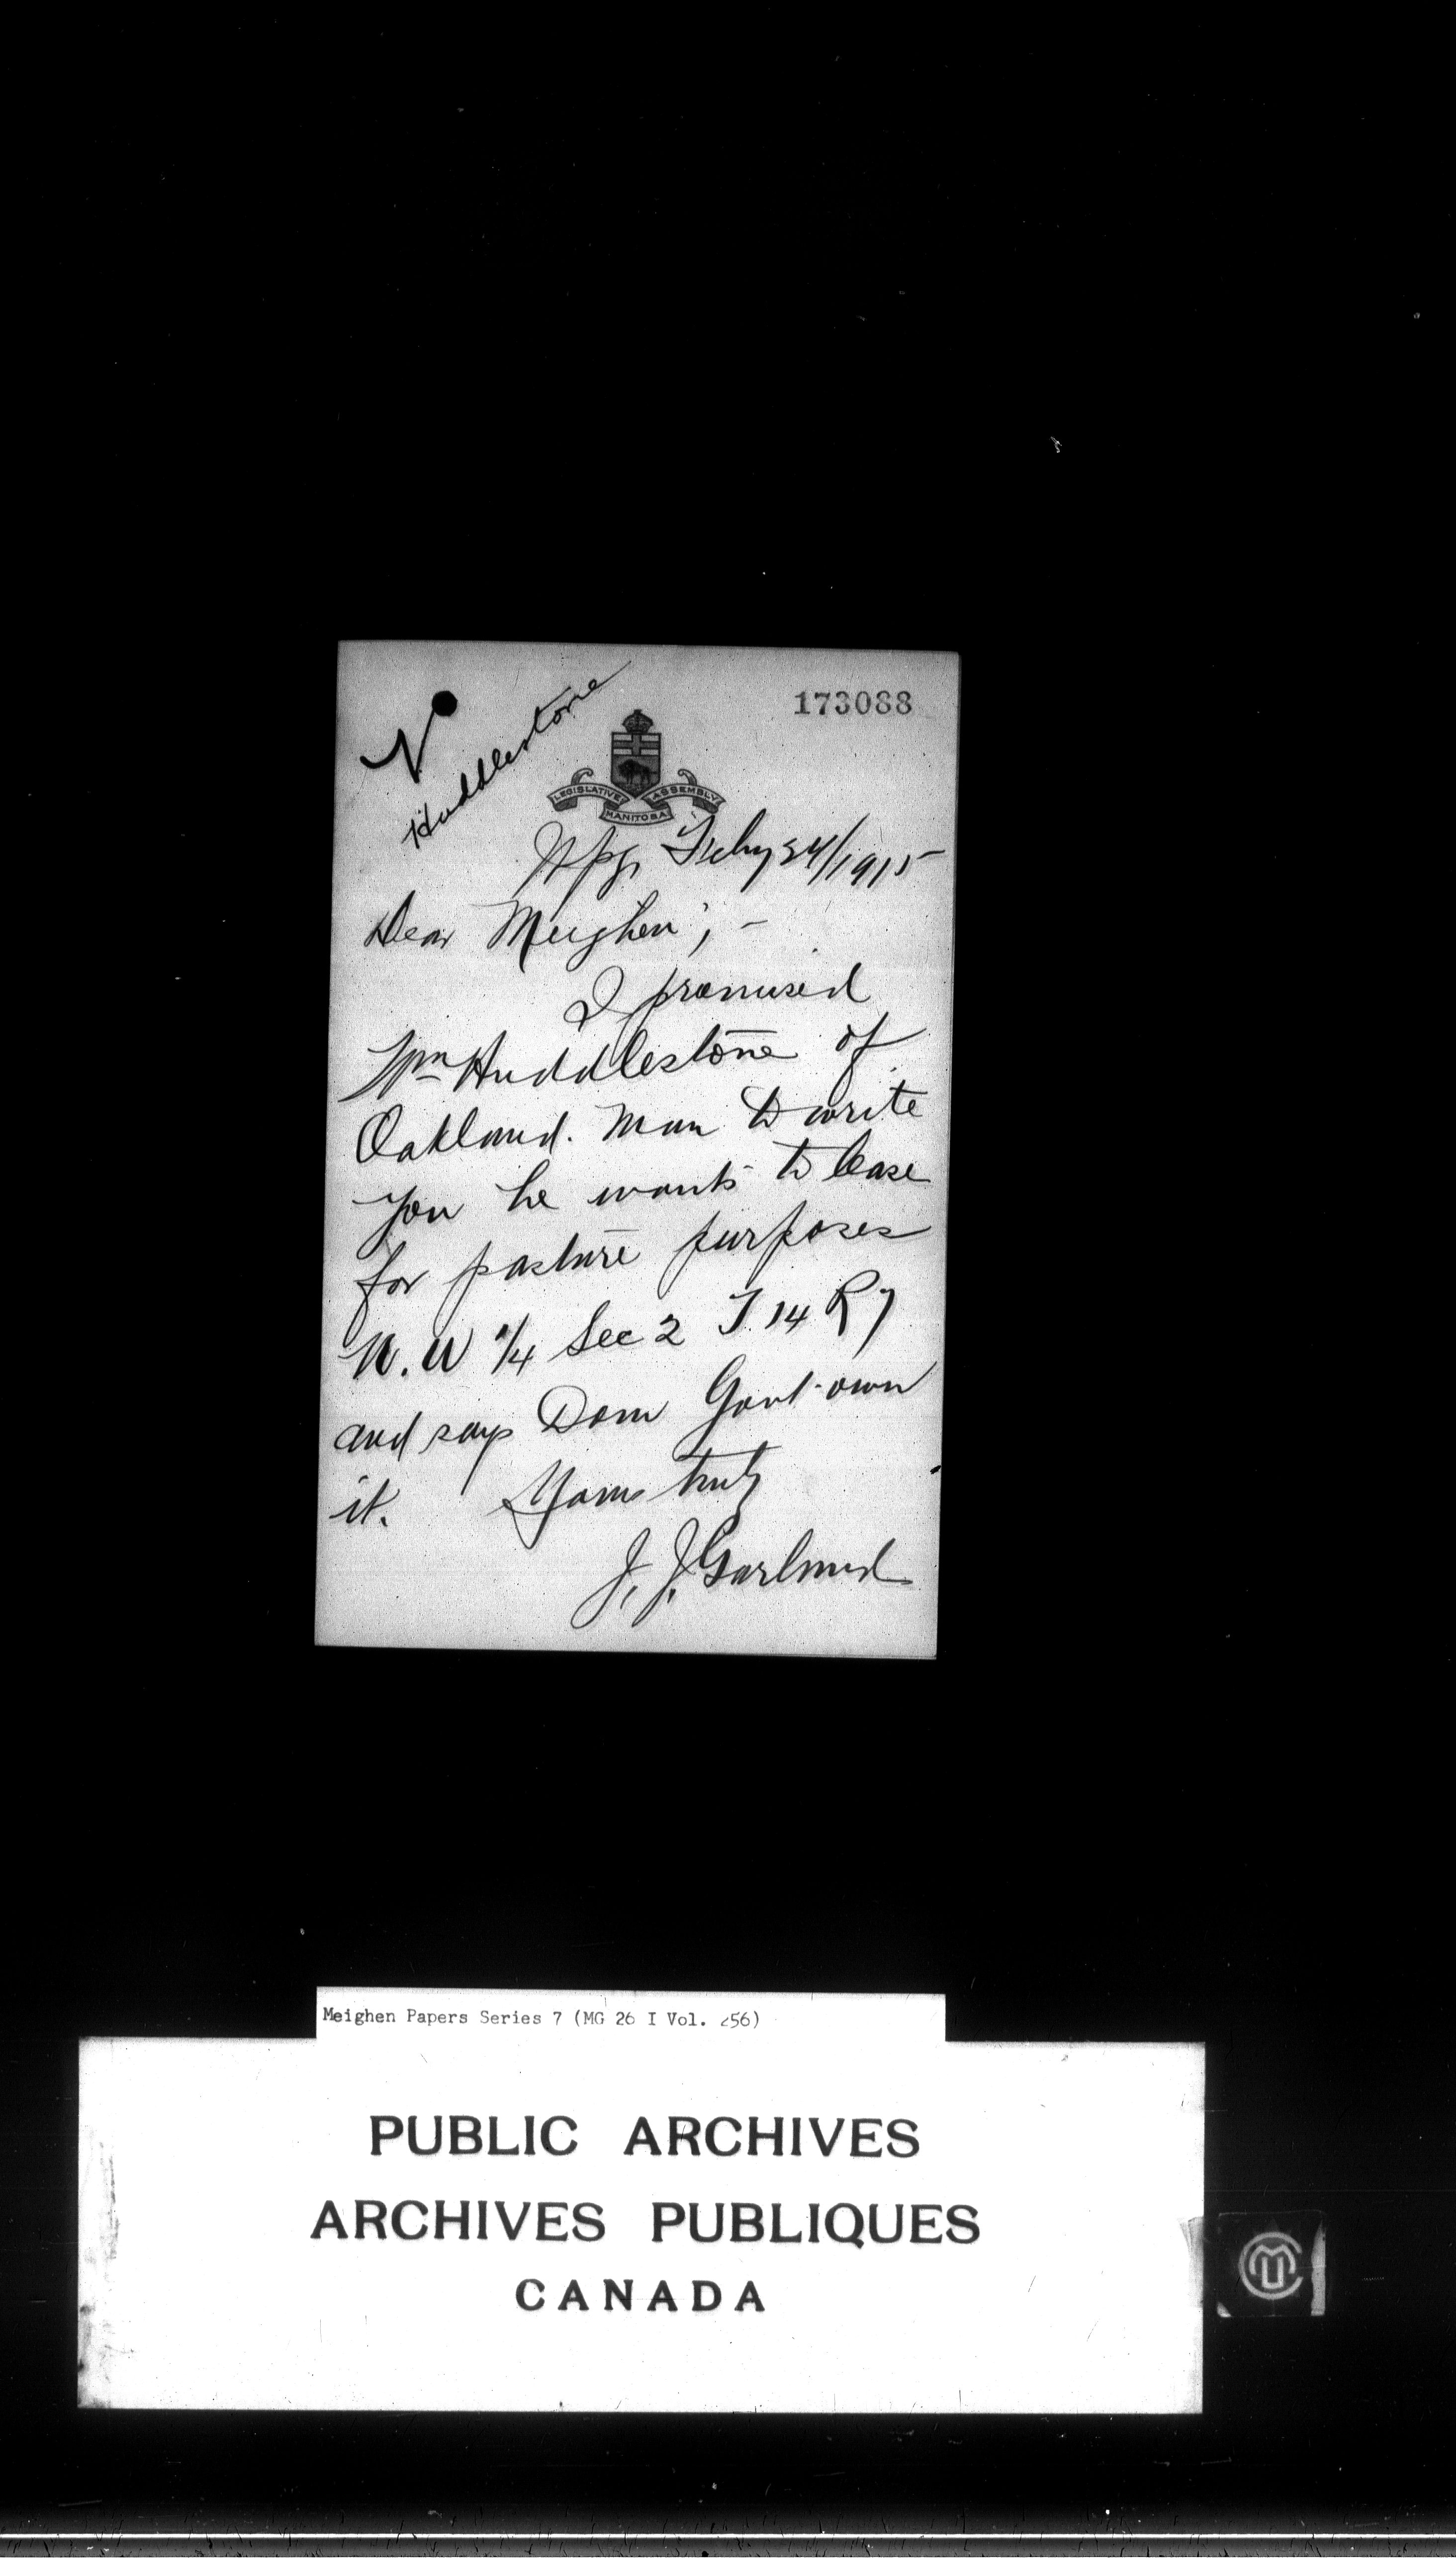 173088
Huddlestone
LEGISLATIVE ASSEMBLY
MANITOBA
Wpg. Feby 24/1915
Dear Meighen; -
I promised
Wm Huddlestone of
Oakland. Man to write
you he wants to lease
for pasture purposes
N.W 1/4 Sec 2 T. 14 R 7
and says Dom Govt own
it. Yours truly
J. J. Garland
Meighen Papers Series 7 (MG 26 I Vol. 256)
PUBLIC ARCHIVES
ARCHIVES PUBLIQUES
CANADA